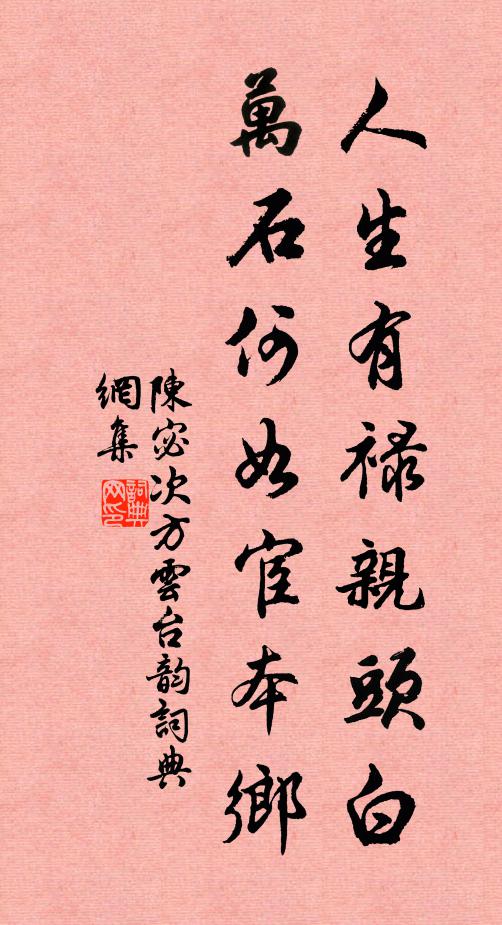 人生有禄親頭白
萬石何如宦本鄉
陳宓次方雲台韵詞典
網集
詞典網印